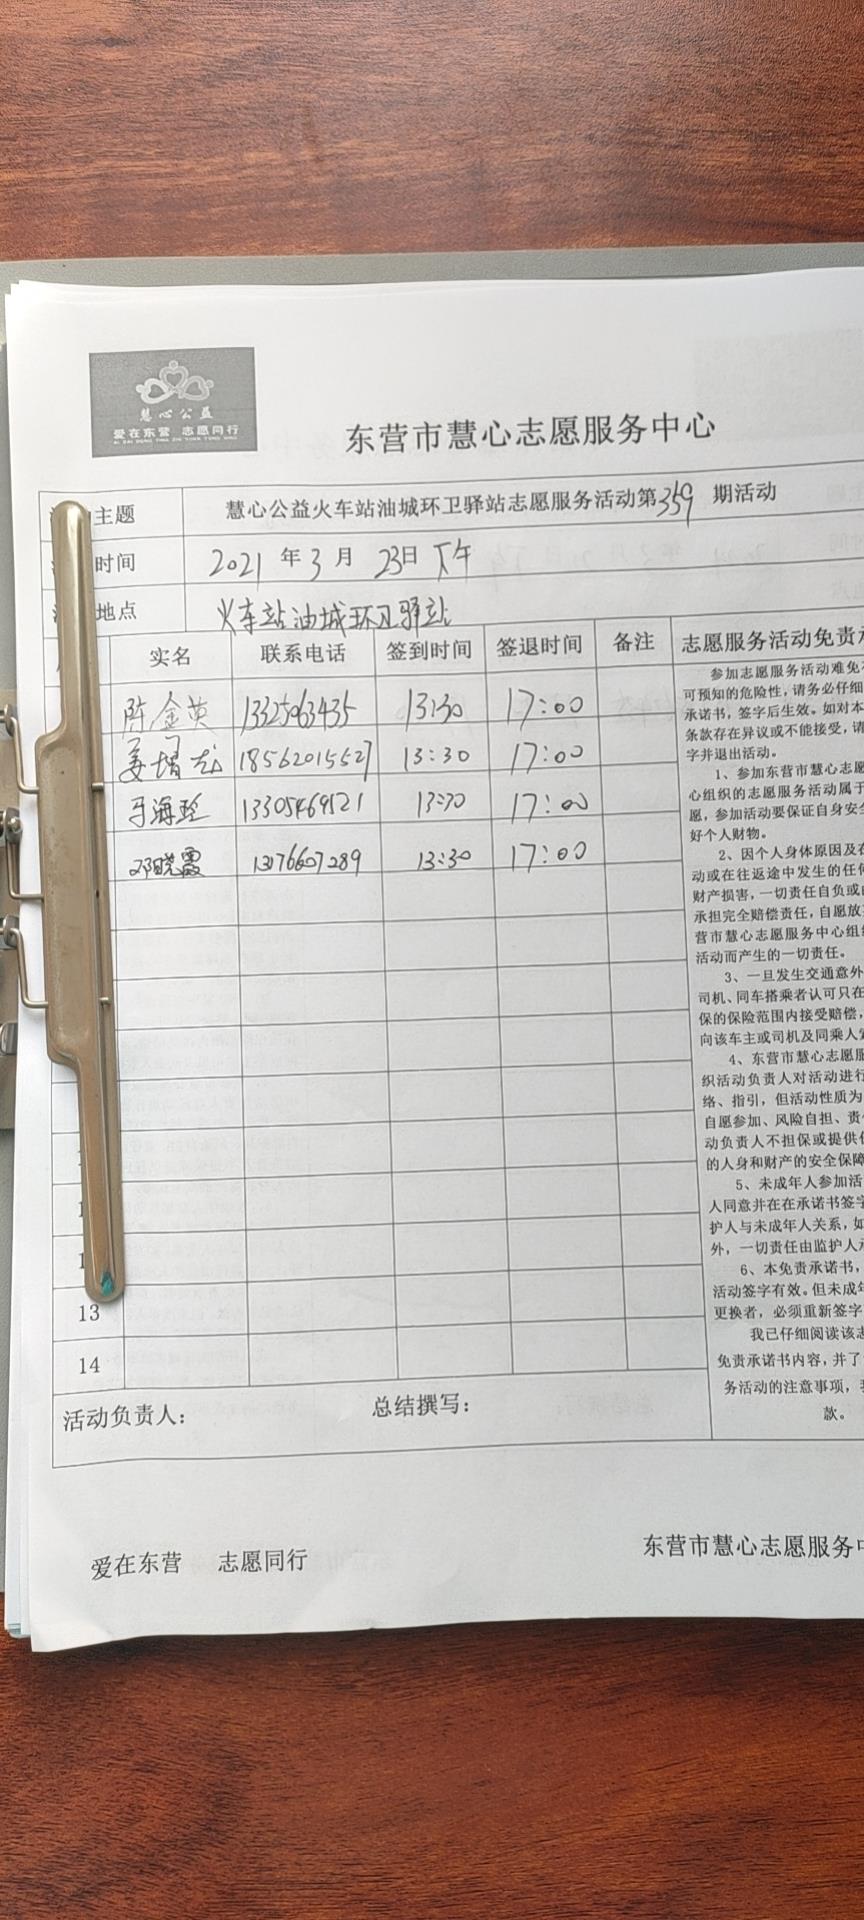 慧心公益
爱在东营 志愿同行
AI ZAI DONG YING ZHI YUAN TONG XING
东营市慧心志愿服务中心
主题 慧心公益火车站油城环卫驿站志愿服务活动第359期活动
时间 2021年3月23日下午
地点 火车站油城环卫驿站
实名 联系电话 签到时间 签退时间 备注 志愿服务活动免责
陈金英 13325063435 13:30 17:00
姜增 18562015527 13:30 17:00
海 13305469521 13:30 17:00
邓晓霞 13176607289 13:30 17:00
13
14
活动负责人： 总结撰写：
参加志愿服务活动难免
可预知的危险性，请务必仔细
承诺书，签字后生效。如对本
条款存在异议或不能接受，请
字并退出活动。
1、参加东营市慧心志愿
心组织的志愿服务活动属于
愿，参加活动要保证自身安全
好个人财物。
2、因个人身体原因及在
动或在往返途中发生的任何
财产损害，一切责任自负或由
承担完全赔偿责任，自愿放
营市慧心志愿服务中心组织
活动而产生的一切责任。
3、一旦发生交通意外
司机、同车搭乘者认可只在
保的保险范围内接受赔偿，
向该车主或司机及同乘人
4、东营市慧心志愿服
织活动负责人对活动进行
络、指引，但活动性质为
自愿参加、风险自担、责
动负责人不担保或提供任
的人身和财产的安全保障
5、未成年人参加活
人同意并在在承诺书签字
护人与未成年人关系，如
外，一切责任由监护人承
6、本免责承诺书，
活动签字有效。但未成年
更换者，必须重新签字
我已仔细阅读该志
免责承诺书内容，并了
务活动的注意事项，
款。
爱在东营 志愿同行
东营市慧心志愿服务中